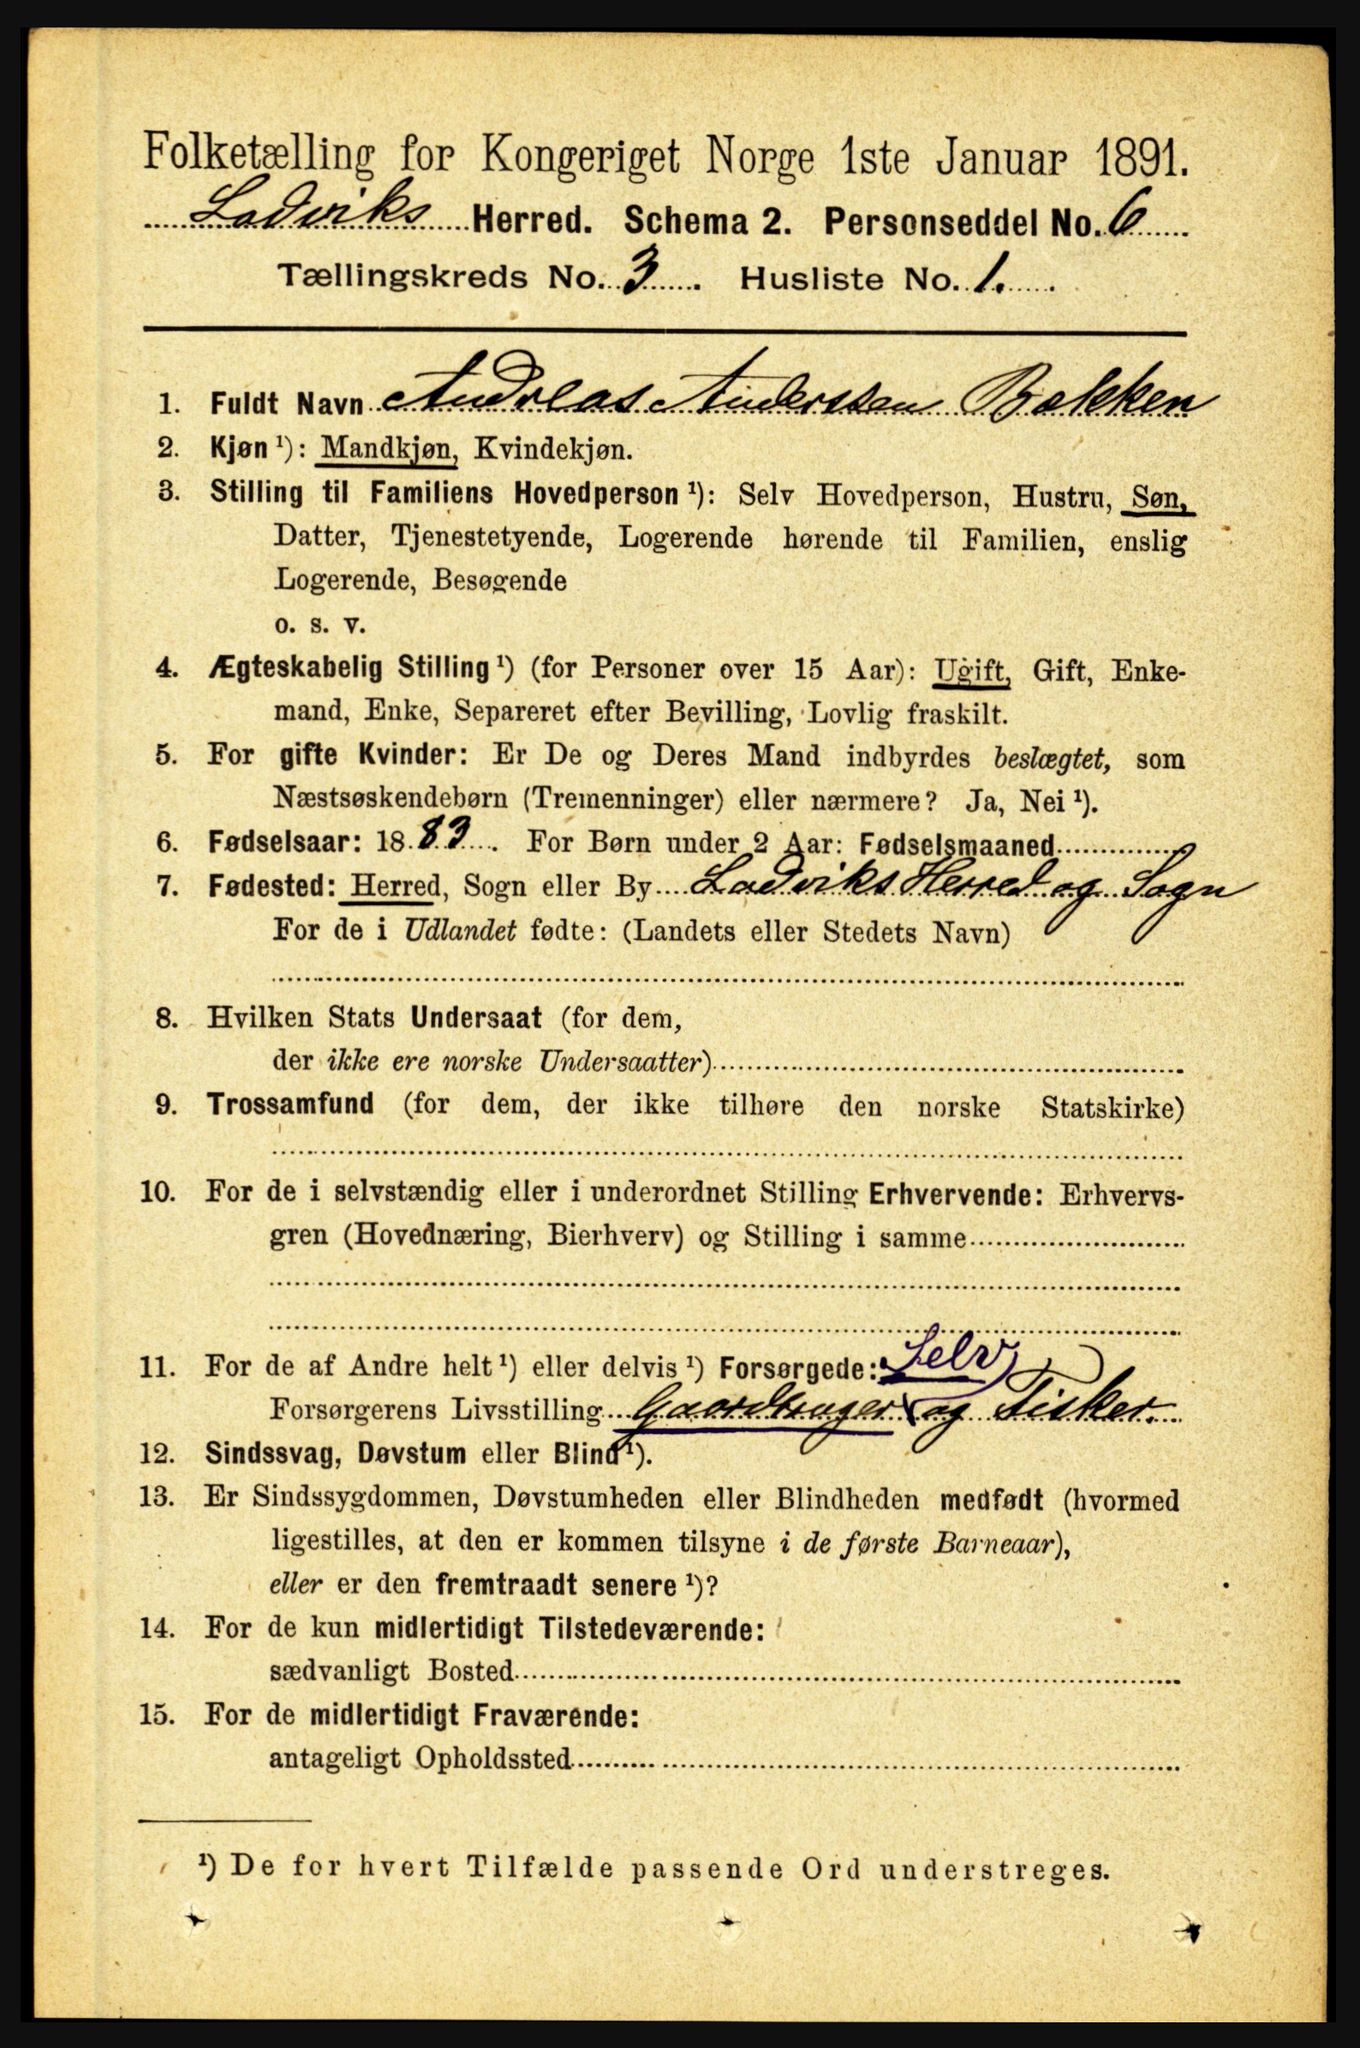 Folketælling for Kongeriget Norge 1ste Januar 1891.
Ladviks Herred. Schema 2. Personseddel No. 6
Tællingskreds No. 3. Husliste No. 1.
1. Fuldt Navn Andreas Anderssen Bakken
2. Kjøn ¹): Mandkjøn, Kvindekjøn.
3. Stilling til Familiens Hovedperson ¹): Selv Hovedperson, Hustru, Søn,
Datter, Tjenestetyende, Logerende hørende til Familien, enslig
Logerende, Besøgende
o. s. v.
4. Ægteskabelig Stilling ¹) (for Personer over 15 Aar): Ugift, Gift, Enke-
mand, Enke, Separeret efter Bevilling, Lovlig fraskilt.
5. For gifte Kvinder: Er De og Deres Mand indbyrdes beslægtet, som
Næstsøskendebørn (Tremenninger) eller nærmere? Ja, Nei ¹).
6. Fødselsaar: 1883. For Børn under 2 Aar: Fødselsmaaned
7. Fødested: Herred, Sogn eller By Ladviks Herred og Sogn
For de i Udlandet fødte: (Landets eller Stedets Navn)
8. Hvilken Stats Undersaat (for dem,
der ikke ere norske Undersaatter)
9. Trossamfund (for dem, der ikke tilhøre den norske Statskirke)
10. For de i selvstændig eller i underordnet Stilling Erhvervende: Erhvervs-
gren (Hovednæring, Bierhverv) og Stilling i samme
11. For de af Andre helt ¹) eller delvis ¹) Forsørgede: Selv
Forsørgerens Livsstilling Gaardbruger og Fisker.
12. Sindssvag, Døvstum eller Blind ¹).
13. Er Sindssygdommen, Døvstumheden eller Blindheden medfødt (hvormed
ligestilles, at den er kommen tilsyne i de første Barneaar),
eller er den fremtraadt senere ¹)?
14. For de kun midlertidigt Tilstedeværende:
sædvanligt Bosted
15. For de midlertidigt Fraværende:
antageligt Opholdssted
¹) De for hvert Tilfælde passende Ord understreges.